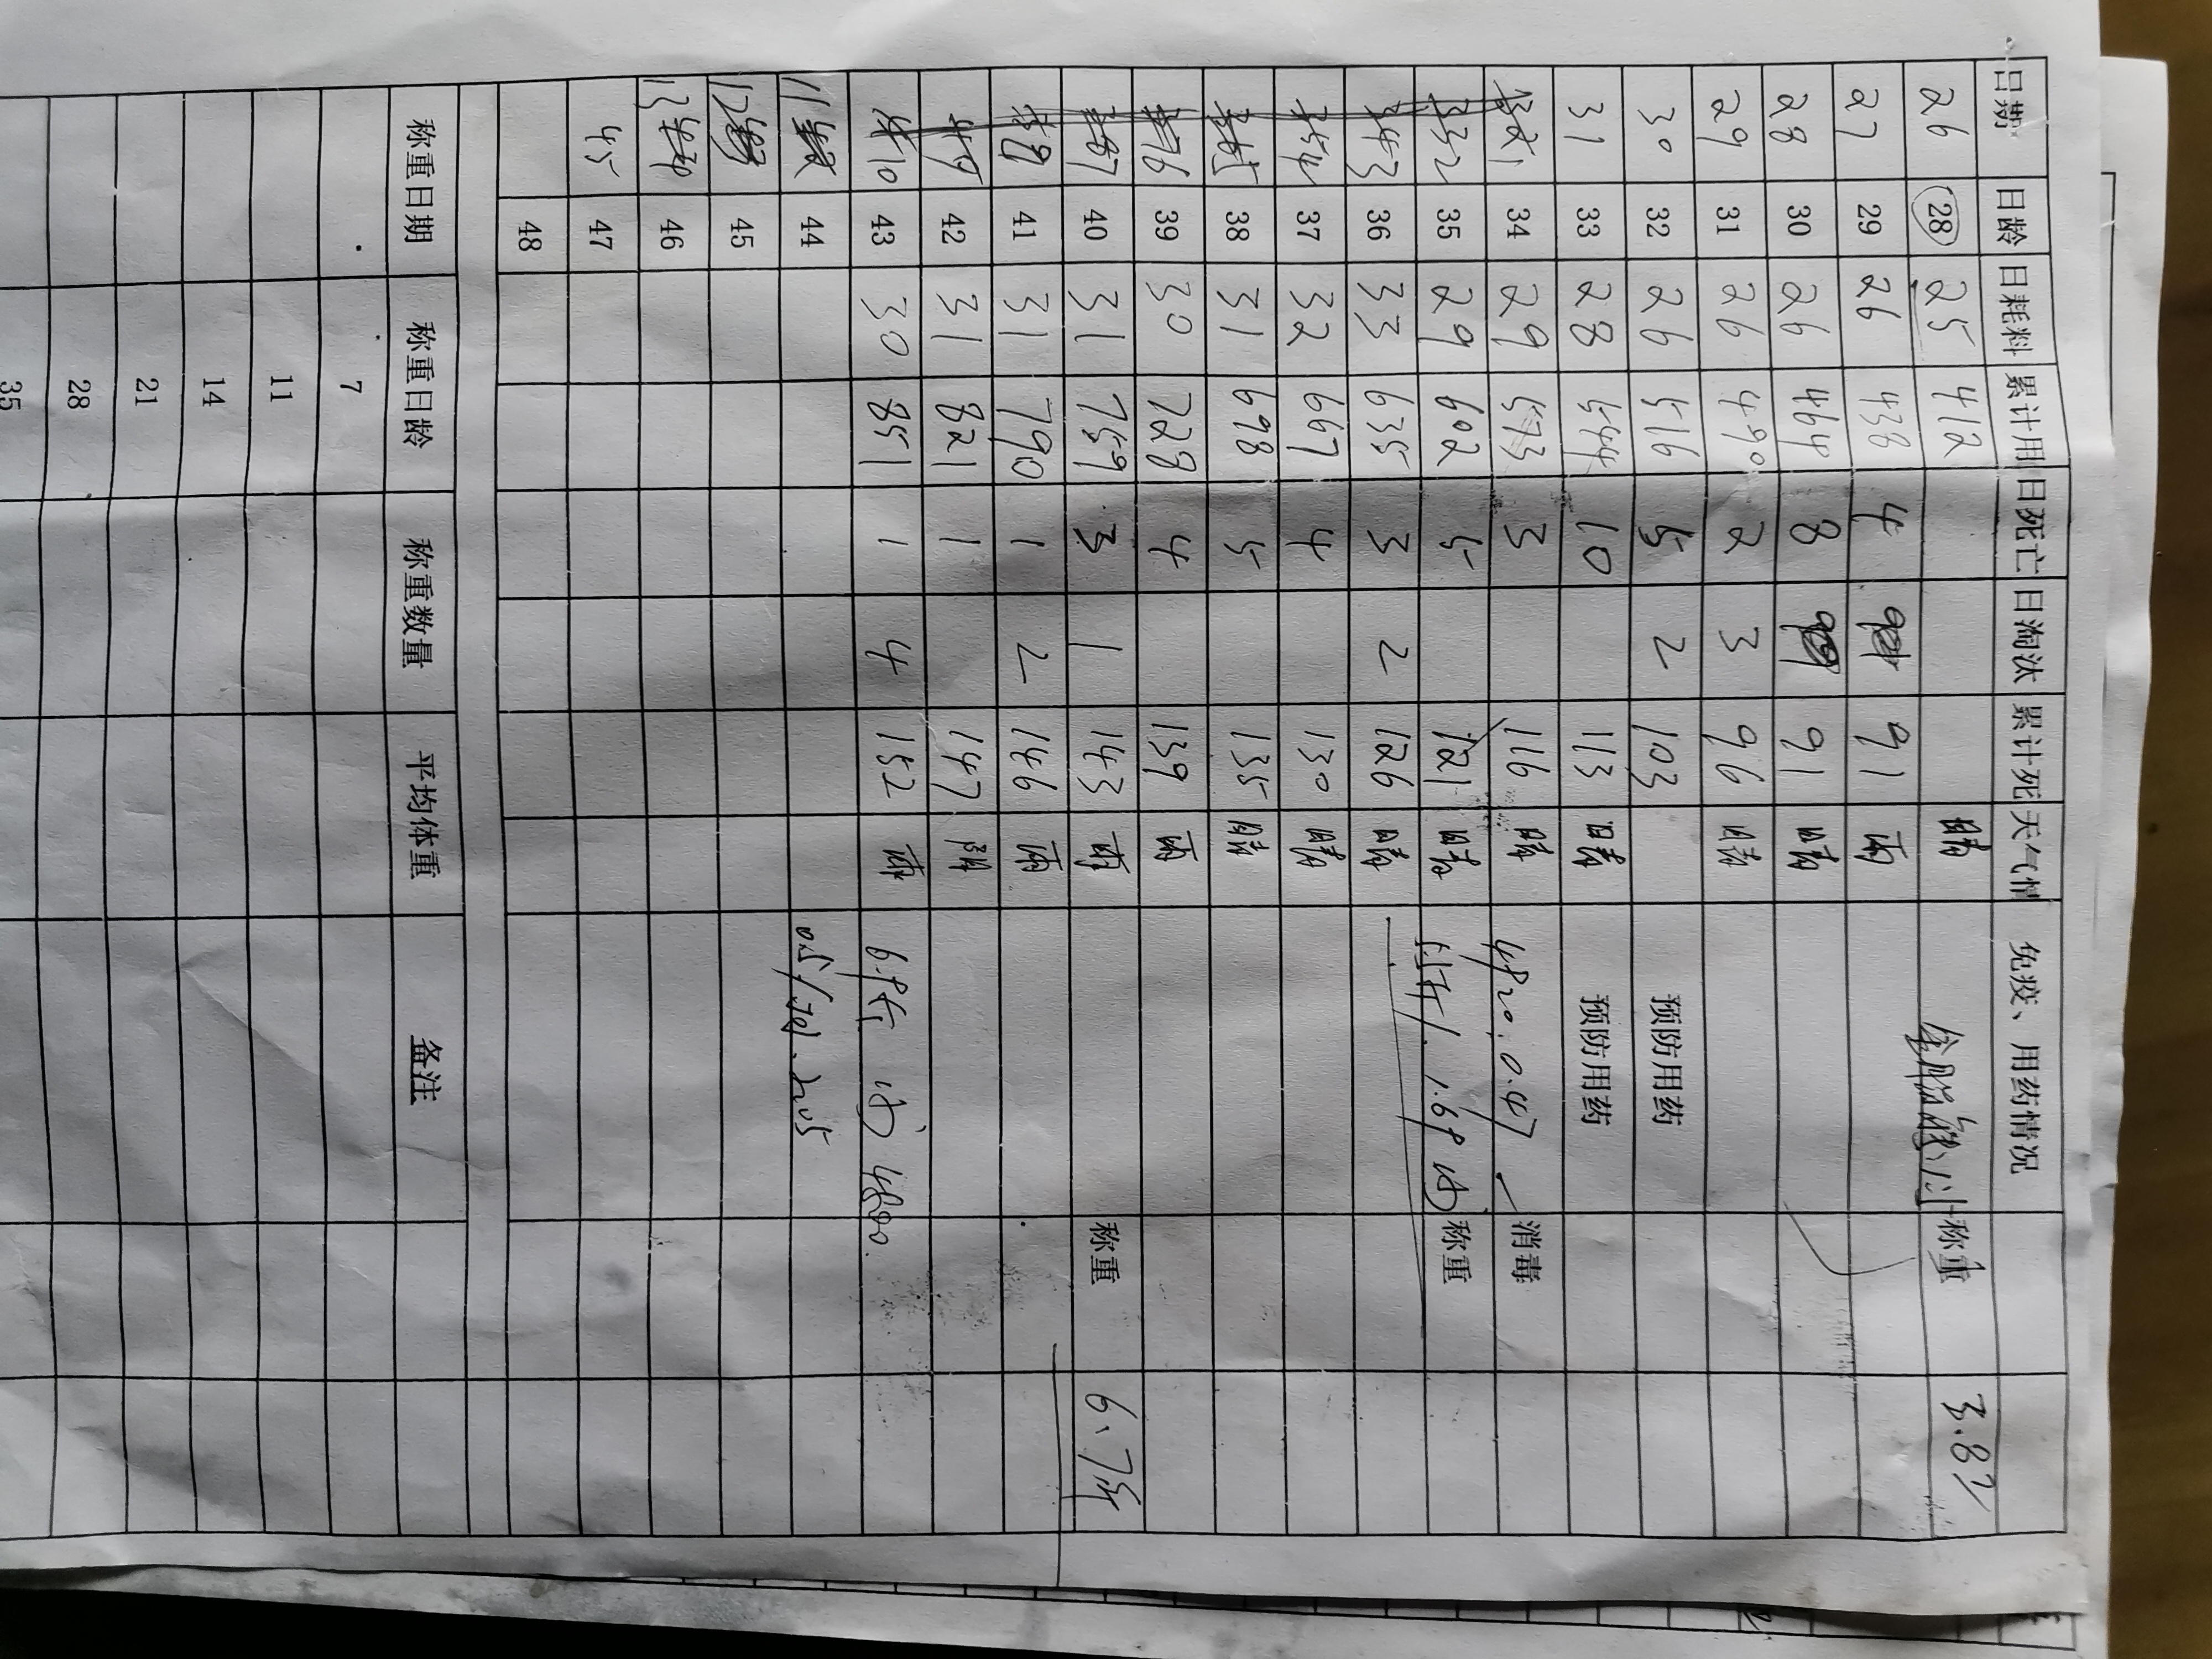 日期 日龄 日耗料 累计用 日死亡 日淘汰 累计死 天气情 免疫、用药情况
26 28 25 412 晴 称重 3.8
27 29 26 438 4 91 雨
28 30 26 464 8 91 晴
29 31 26 490 2 3 96 晴
30 32 26 516 5 2 103 预防用药
31 33 28 544 10 113 晴 预防用药
34 29 573 3 116 晴 消毒
35 29 602 5 121 晴 1.6 称重
36 33 635 3 2 126 晴
37 32 667 4 130 晴
38 31 698 5 135 晴
39 30 728 4 139 雨
40 31 759 3 1 143 称重 6.7斤
41 31 790 1 2 146 雨
42 31 821 1 147 阴
10 43 30 851 1 4 152
11 44
12 45
13 46
47
48
称重日期 称重日龄 称重数量 平均体重 备注
7
11
14
21
28
35